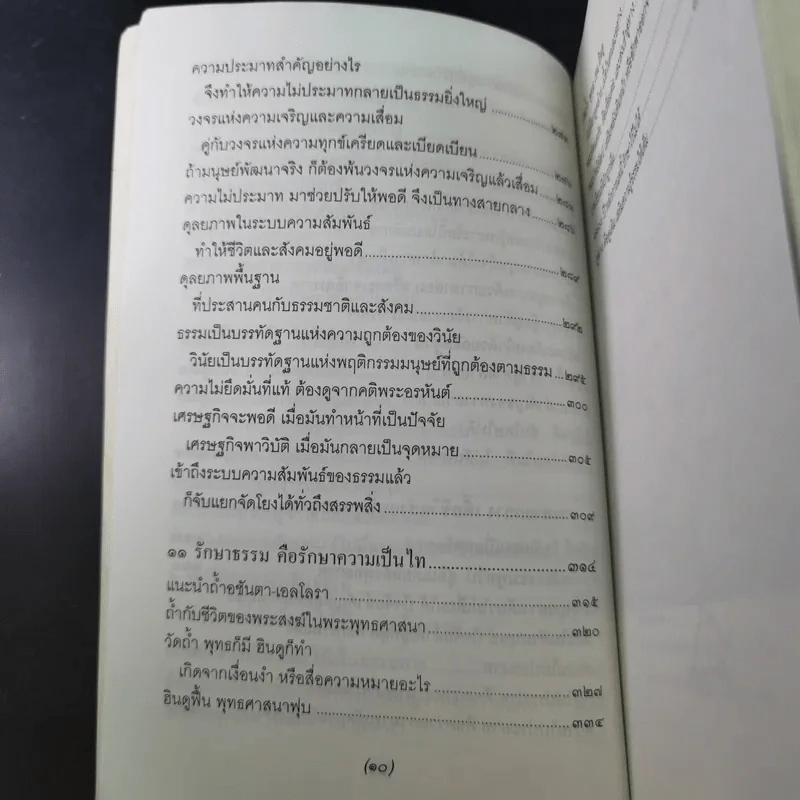 ความประมาทสำคัญอย่างไร
จึงทำให้ความไม่ประมาทกลายเป็นธรรมยิ่งใหญ่
วงจรแห่งความเจริญและความเสื่อม
คู่กับวงจรแห่งความทุกข์เครียดและเบียดเบียน
ถ้ามนุษย์พัฒนาจริง ก็ต้องพ้นวงจรแห่งความเจริญแล้วเสื่อม
ความไม่ประมาท มาช่วยปรับให้พอดี จึงเป็นทางสายกลาง
ดุลยภาพในระบบความสัมพันธ์
ทำให้ชีวิตและสังคมอยู่พอดี ๒๘๙
ดุลยภาพพื้นฐาน
ที่ประสานคนกับธรรมชาติและสังคม ๒๙๒
ธรรมเป็นบรรทัดฐานแห่งความถูกต้องของวินัย
วินัยเป็นบรรทัดฐานแห่งพฤติกรรมมนุษย์ที่ถูกต้องตามธรรม ๒๙๕
ความไม่ยึดมั่นที่แท้ ต้องดูจากคติพระอรหันต์ ๓๐๐
เศรษฐกิจจะพอดี เมื่อมันทำหน้าที่เป็นปัจจัย
เศรษฐกิจพาวิบัติ เมื่อมันกลายเป็นจุดหมาย ๓๐๕
เข้าถึงระบบความสัมพันธ์ของธรรมแล้ว
ก็จับแยกจัดโยงได้ทั่วถึงสรรพสิ่ง ๓๐๙
๑๑ รักษาธรรม คือรักษาความเป็นไท ๓๑๔
แนะนำถ้ำอชันตา-เอลโลรา ๓๑๕
ถ้ำกับชีวิตของพระสงฆ์ในพระพุทธศาสนา ๓๒๐
วัดถ้ำ พุทธก็มี ฮินดูก็ทำ
เกิดจากเงื่อนงำ หรือสื่อความหมายอะไร ๓๒๗
ฮินดูฟื้น พุทธศาสนาฟุบ ๓๓๔
(๑๐)